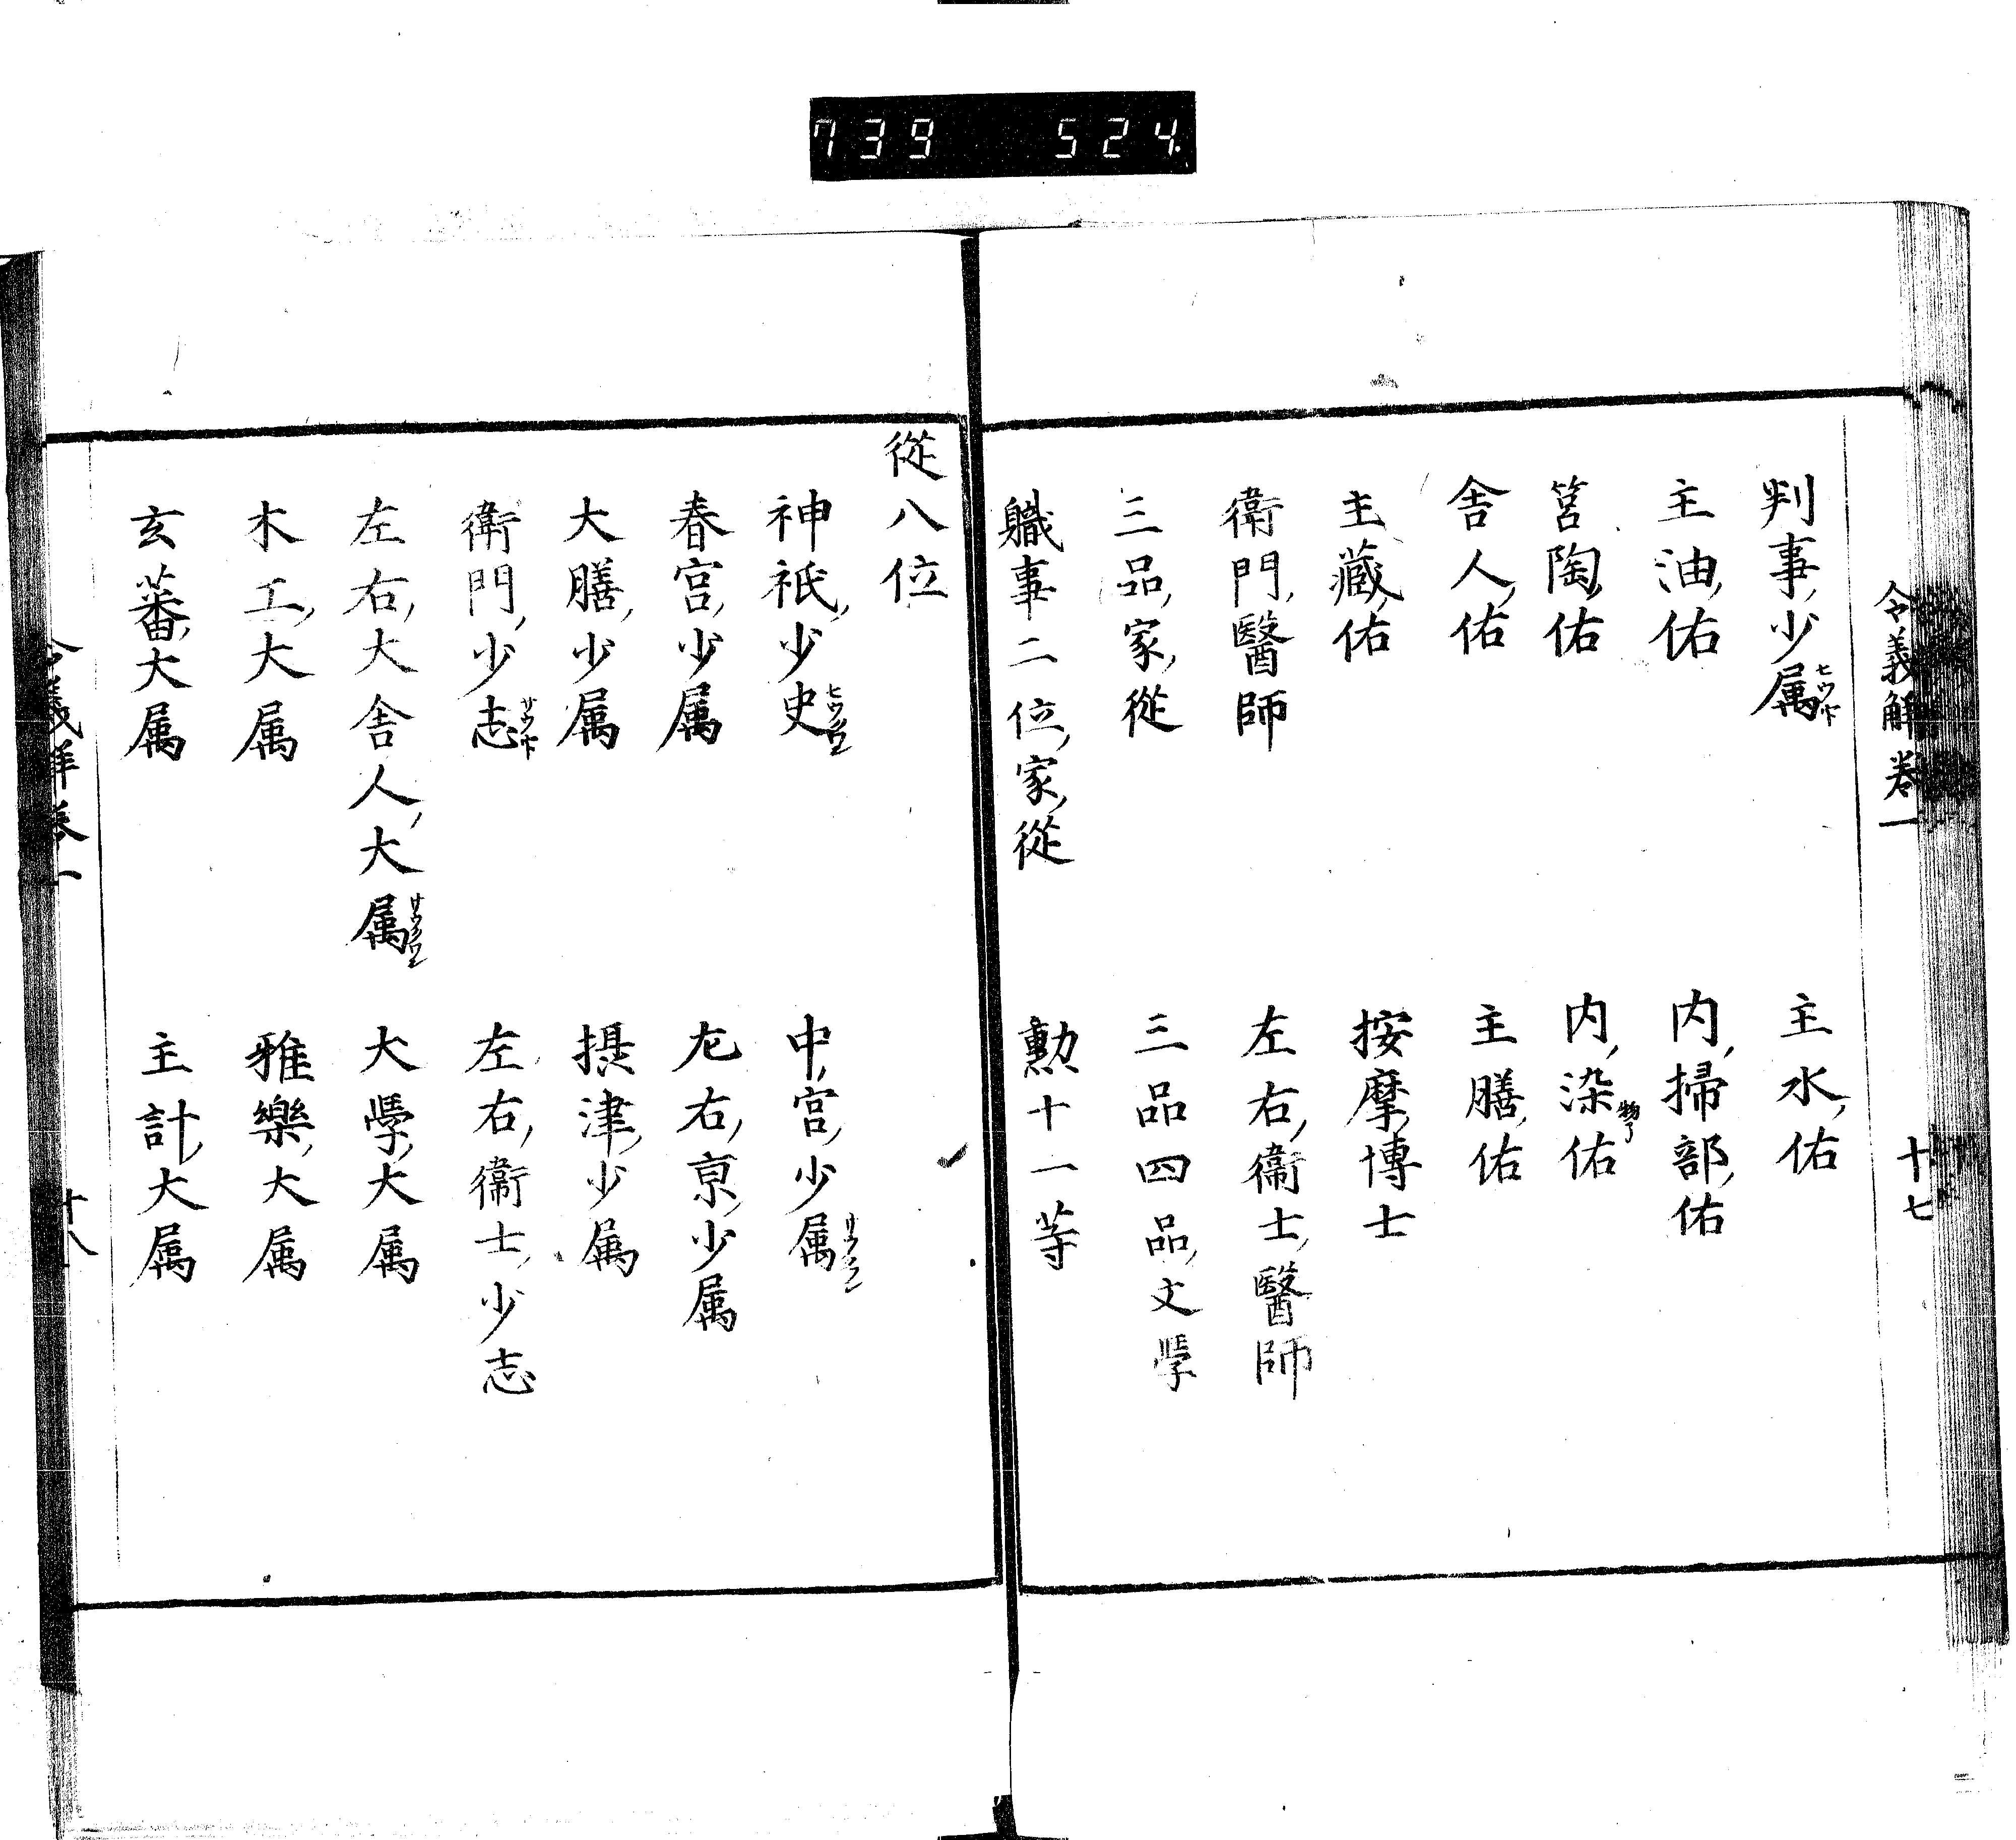 739 524.
令義解卷一 十七
判事少属 主水佑
主油佑 内掃部佑
筥陶佑 内染佑
舎人佑 主膳佑
主藏佑 按摩博士
衛門醫師 左右衞士醫師
三品家從 三品四品文學
職事二位家從 勲十一等
從八位
神祇少史 中宮少属
春宮少属 左右亰少属
大膳少属 摂津少属
衛門少志 左右衞士少志
左右大舎人大属 大學大属
木工大属 雅樂大属
玄蕃大属 主計大属
令義解卷一 十八